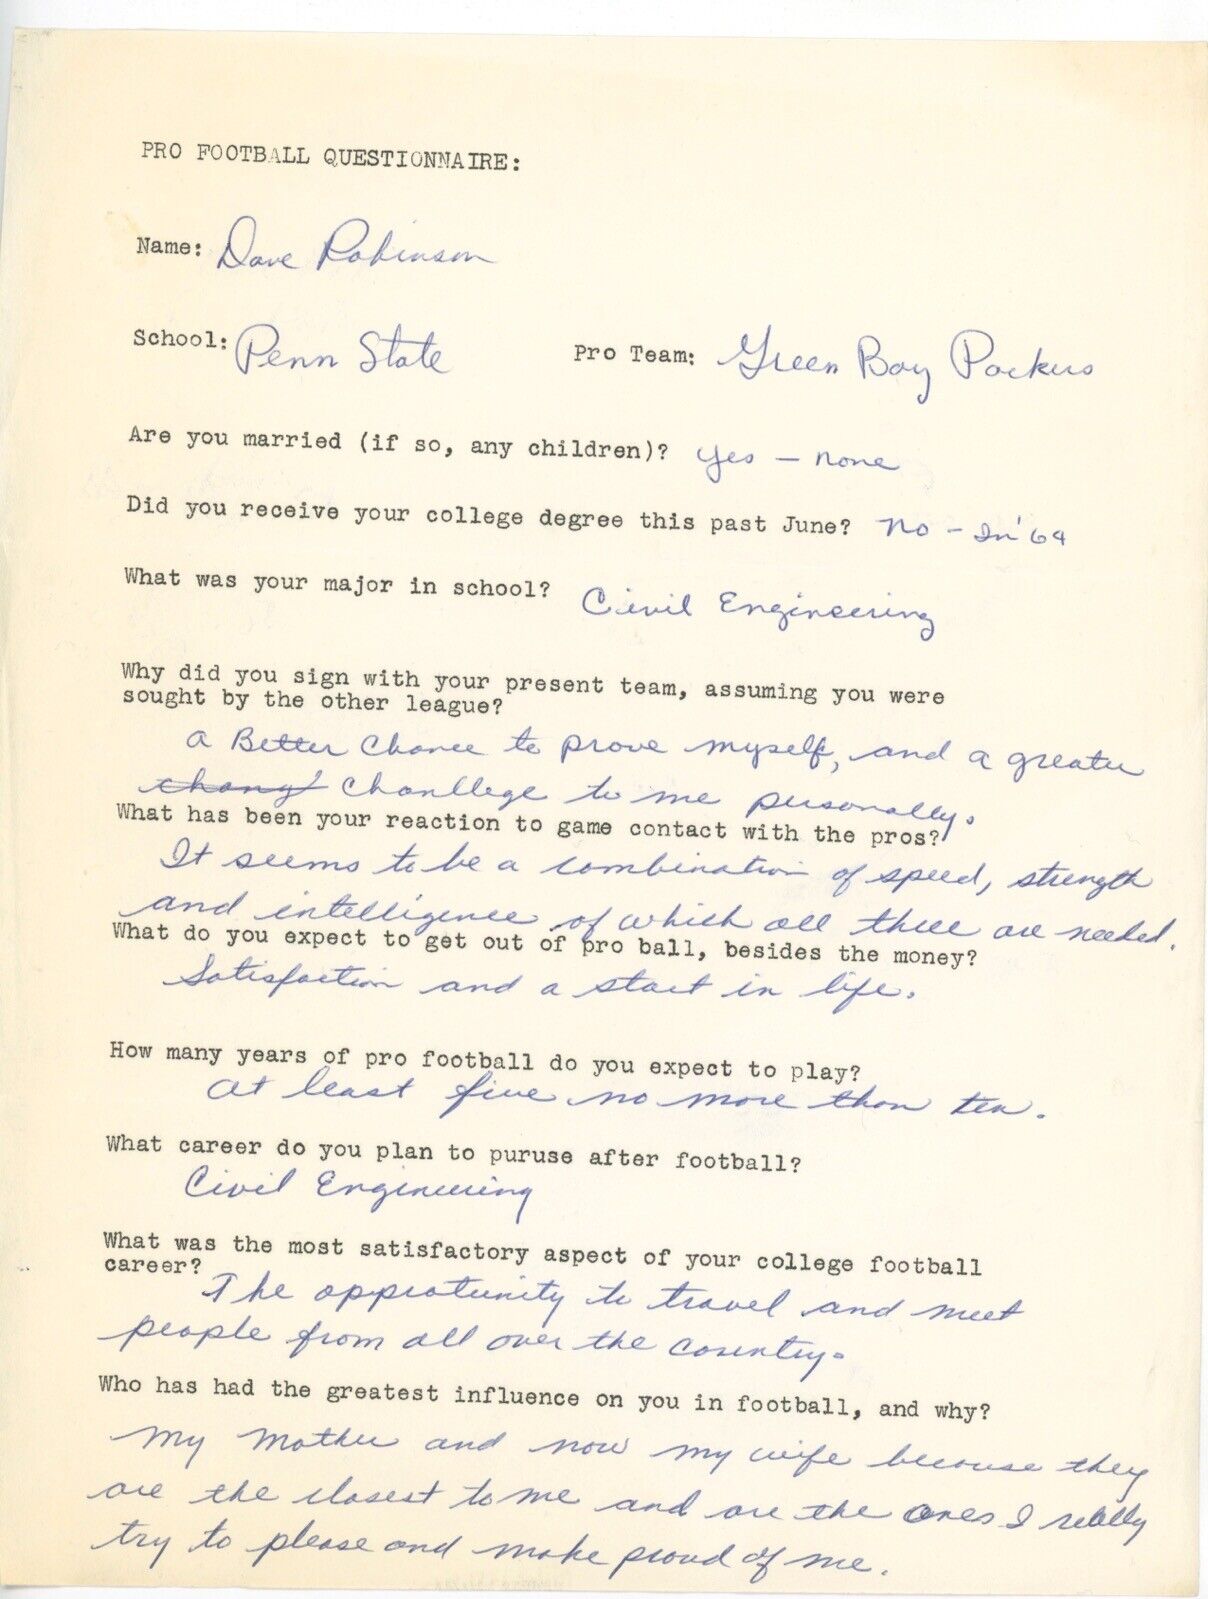 PRO FOOTBALL QUESTIONNAIRE:
Name: Dave Robinson
School: Penn State Pro Team: Green Bay Packers
Are you married (if so, any children)? yes - none
Did you receive your college degree this past June? No - In '64
What was your major in school? Civil Engineering
Why did you sign with your present team, assuming you were
sought by the other league?
A Better Chance to prove myself, and a greater
chang Chanllege to me personally.
What has been your reaction to game contact with the pros?
It seems to be a combination of speed, strength
and intelligence of which all three are needed.
What do you expect to get out of pro ball, besides the money?
Satisfaction and a start in life.
How many years of pro football do you expect to play?
At least five no more than ten.
What career do you plan to puruse after football?
Civil Engineering
What was the most satisfactory aspect of your college football
career?
The opprotunity to travel and meet
people from all over the country.
Who has had the greatest influence on you in football, and why?
My Mother and now my wife because they
are the closest to me and are the ones I really
try to please and make proud of me.